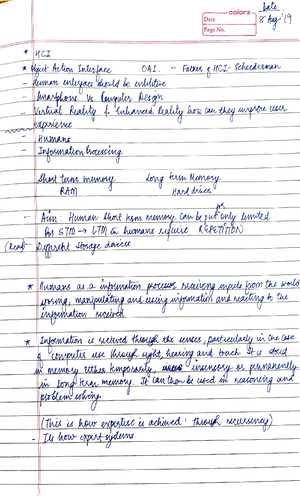 Date
colors
Date
Page No.
8 Aug '19
* HCI
* Object Action Interface OAI. - Father of HCI - Schederman
- Human interface should be intuitive
- Smartphone Vs. Computer Design
- Virtual Reality & Enhanced Reality how can they improve user
experience
- Humans
- Information Processing
Short term memory Long term Memory
RAM Hard drives
- Aim: Human Short term memory can be put only limited
for
for STM → LTM humans require REPETITION
(Read) - Different storage devices
* Humans as a information processor receiving inputs from the world
storing, manipulating and using information and reacting to the
information received
* Information is received through the senses, particularly in the case
of computer use through sight, hearing and touch. It is stored
in memory either temporarily, in sensory or permanently
in long term memory. It can then be used in reasoning and
problem solving
(This is how expertise is achieved: through recurrency)
- Its how expert systems